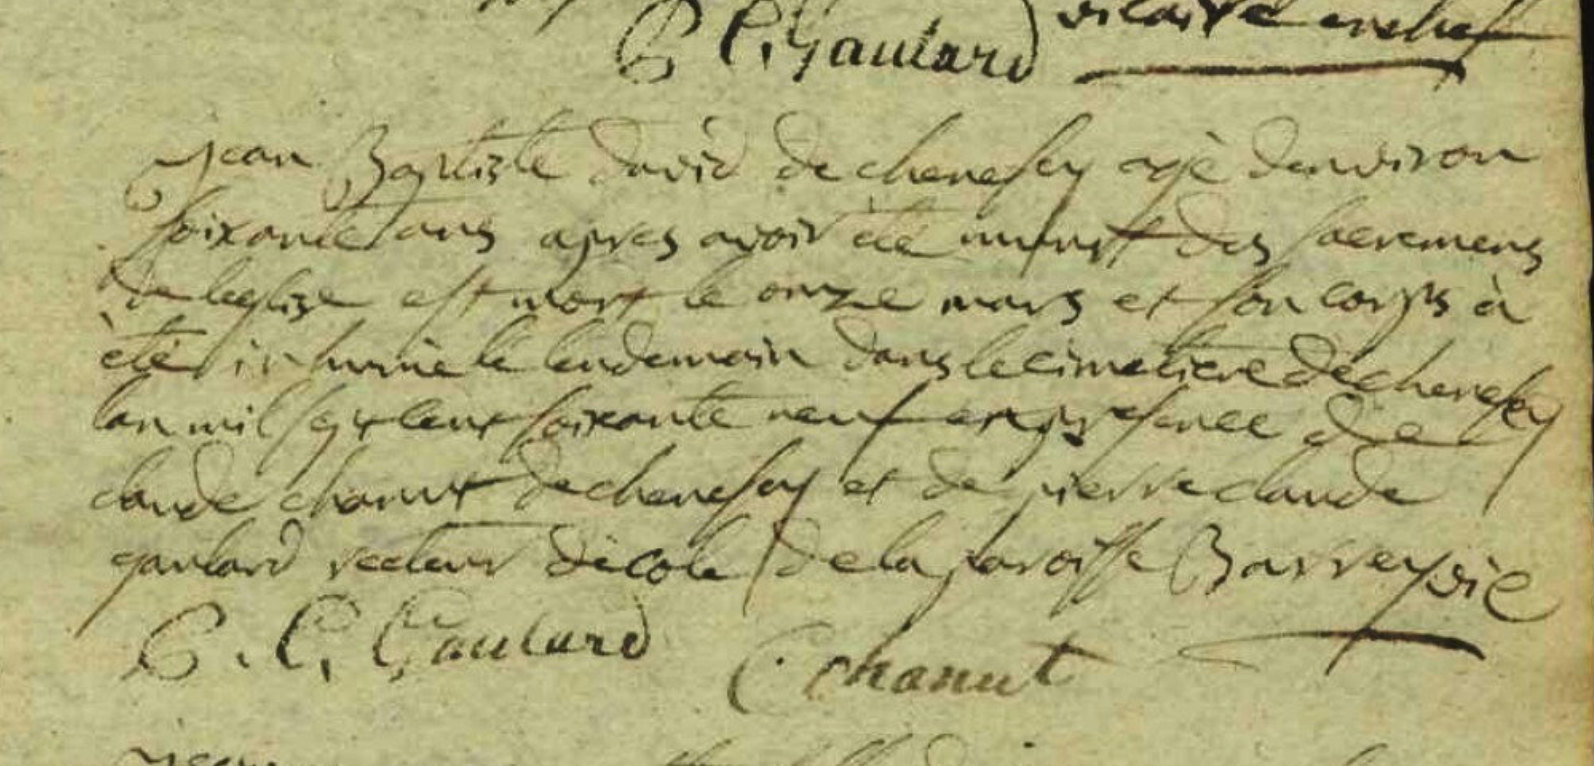 P C. Gaulard vicaire en chef
jean Baptiste david de chenesey agé denviron
soixante ans apres avoir été muni des sacremens
de leglise est mort le onze mars et son corps à
été inhumé le lendemain dans le cimetiere de chenesey
lan mil sept cent soixante neuf en presence de
claude chanut de chenesey et de pierre claude
gaulard recteur décole de la paroisse Barrey vic
P. C. Gaulard C chanut
jean